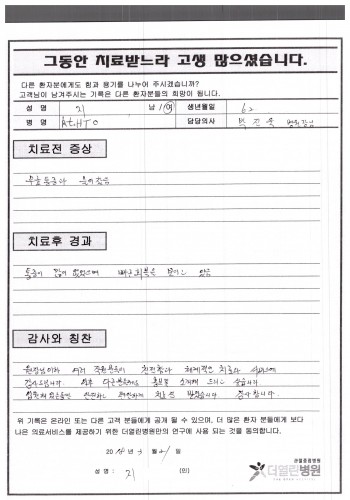 그동안 치료받느라 고생 많으셨습니다.
다른 환자분에게도 힘과 용기를 나누어 주시겠습니까?
고객님이 남겨주시는 기록은 다른 환자분들의 희망이 됩니다.
성 명 지 남/여 생년월일 62
병 명 Rt. HTO 담당의사 박진욱 병원장님
치료전 증상
무릎 통증과
치료후 경과
통증이 많이 없었으며 빠른 회복을 보이고 있음
감사와 칭찬
원장님이하 여러 직원분들이 친절함과 체계적인 치료와
감사드립니다. 다른분들께도 홍보를 드리고 싶습니다
감사합니다.
위 기록은 온라인 또는 다른 고객 분들에게 공개 될 수 있으며, 더 많은 환자 분들에게 보다
나은 의료서비스를 제공하기 위한 더열린병원만의 연구에 사용 되는 것을 동의합니다.
20 년 월 일
성 명 : 지 (인)
관절중점병원
더열린병원